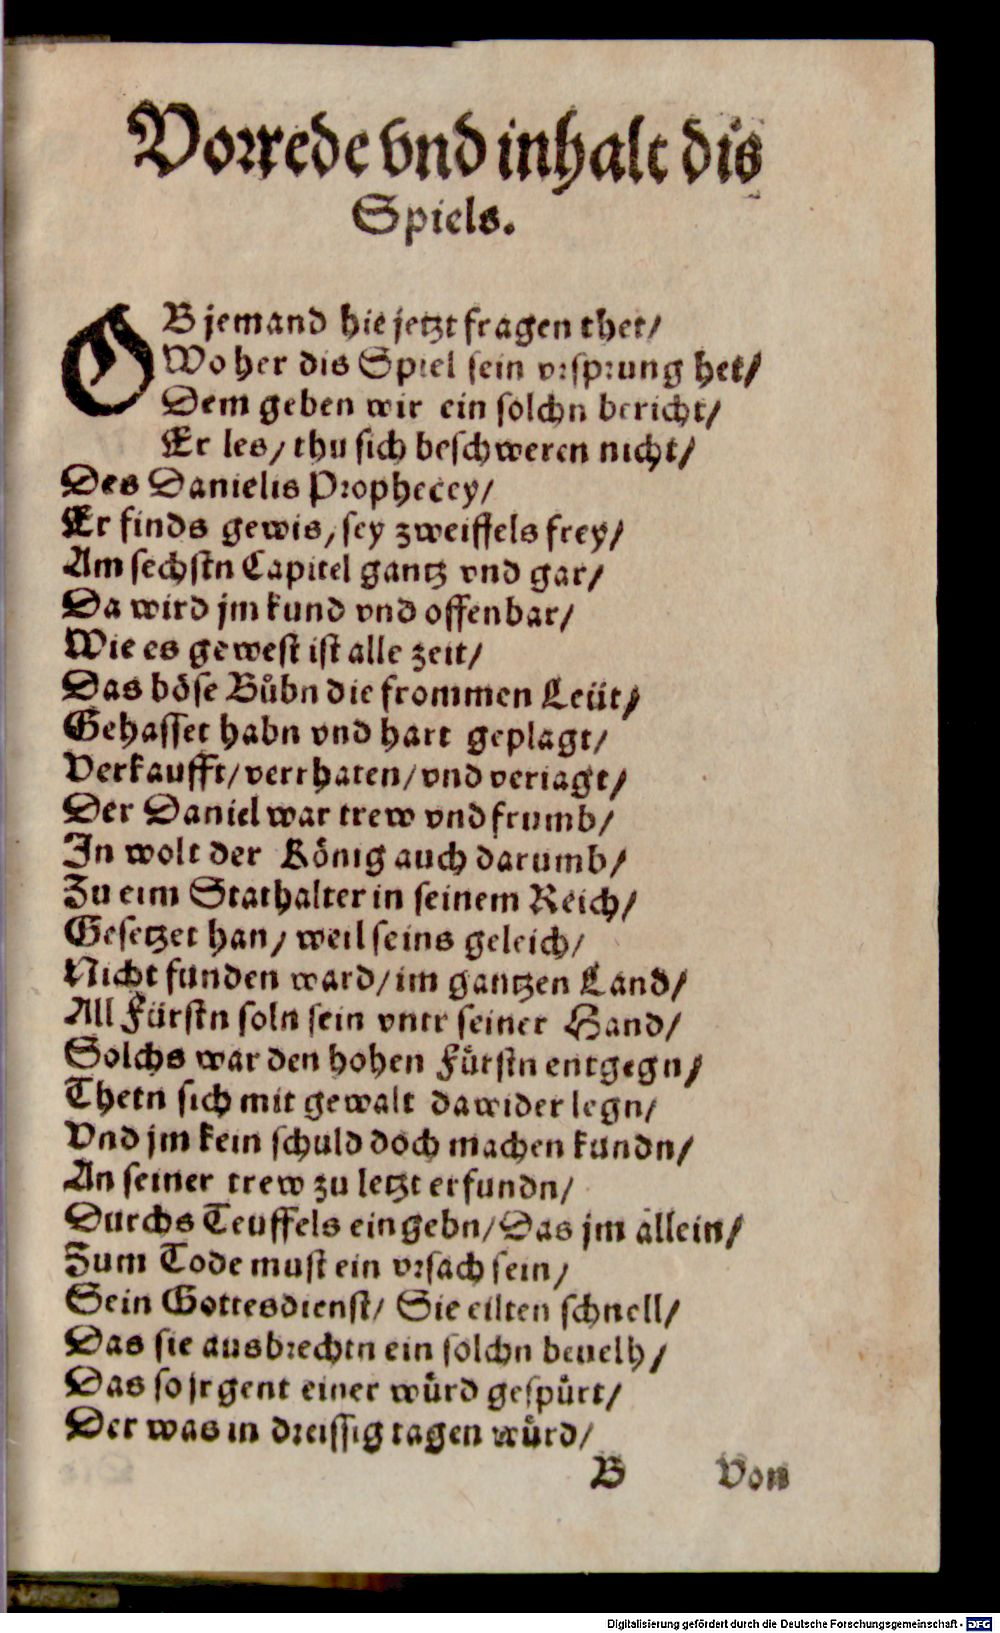 Vorrede vnd inhalt dis
Spiels.
OB jemand hie jetzt fragen thet/
Wo her dis Spiel sein vrsprung het/
Dem geben wir ein solchn bericht/
Er les/ thu sich beschweren nicht/
Des Danielis Prophecey/
Er finds gewis/ sey zweiffels frey/
Am sechstn Capitel gantz vnd gar/
Da wird jm kund vnd offenbar/
Wie es gewest ist alle zeit/
Das böse Bůbn die frommen Leüt/
Gehasset habn vnd hart geplagt/
Verkaufft/ verrhaten/ vnd veriagt/
Der Daniel war trew vnd frumb/
In wolt der König auch darumb/
Zu eim Stathalter in seinem Reich/
Gesetzet han/ weil seins geleich/
Nicht funden ward/ im gantzen Land/
All Fürstn soln sein vntr seiner Hand/
Solchs war den hohen Fürstn entgegn/
Thetn sich mit gewalt dawider legn/
Vnd jm kein schuld doch machen kundn/
An seiner trew zu letzt erfundn/
Durchs Teuffels eingebn/ Das jm allein/
Zum Tode must ein vrsach sein/
Sein Gottesdienst/ Sie eilten schnell/
Das sie ausbrechtn ein solchn beuelh/
Das so jrgent einer wůrd gespůrt/
Der was in dreissig tagen wůrd/
B Von
Digitalisierung gefördert durch die Deutsche Forschungsgemeinschaft - DFG